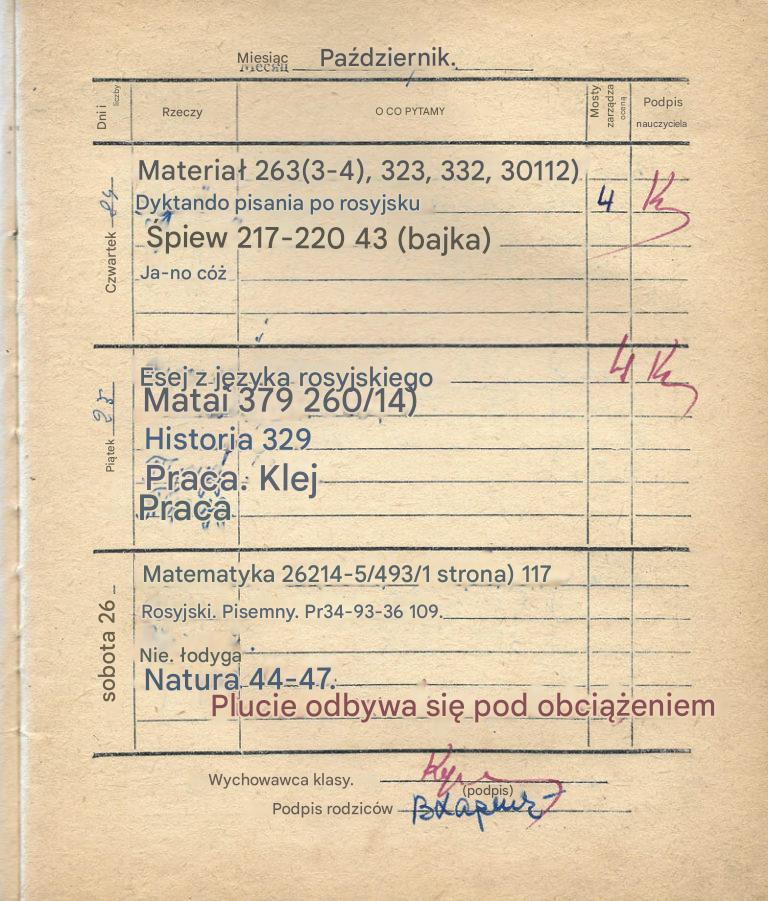 Miesiąc Październik.
Месяц
Dni i liczby
Rzeczy
O CO PYTAMY
Mosty zarządza oceną
Podpis nauczyciela
Czwartek
Materiał 263(3-4), 323, 332, 30112)
Dyktando pisania po rosyjsku 4
Śpiew 217-220 43 (bajka)
Ja-no cóż
Piątek
Esej z języka rosyjskiego 4
Matai 379 260/14)
Historia 329
Praca. Klej
Praca
sobota 26
Matematyka 26214-5/493/1 strona) 117
Rosyjski. Pisemny. Pr34-93-36 109.
Nie. łodyga
Natura 44-47.
Plucie odbywa się pod obciążeniem
Wychowawca klasy.
(podpis)
Podpis rodziców